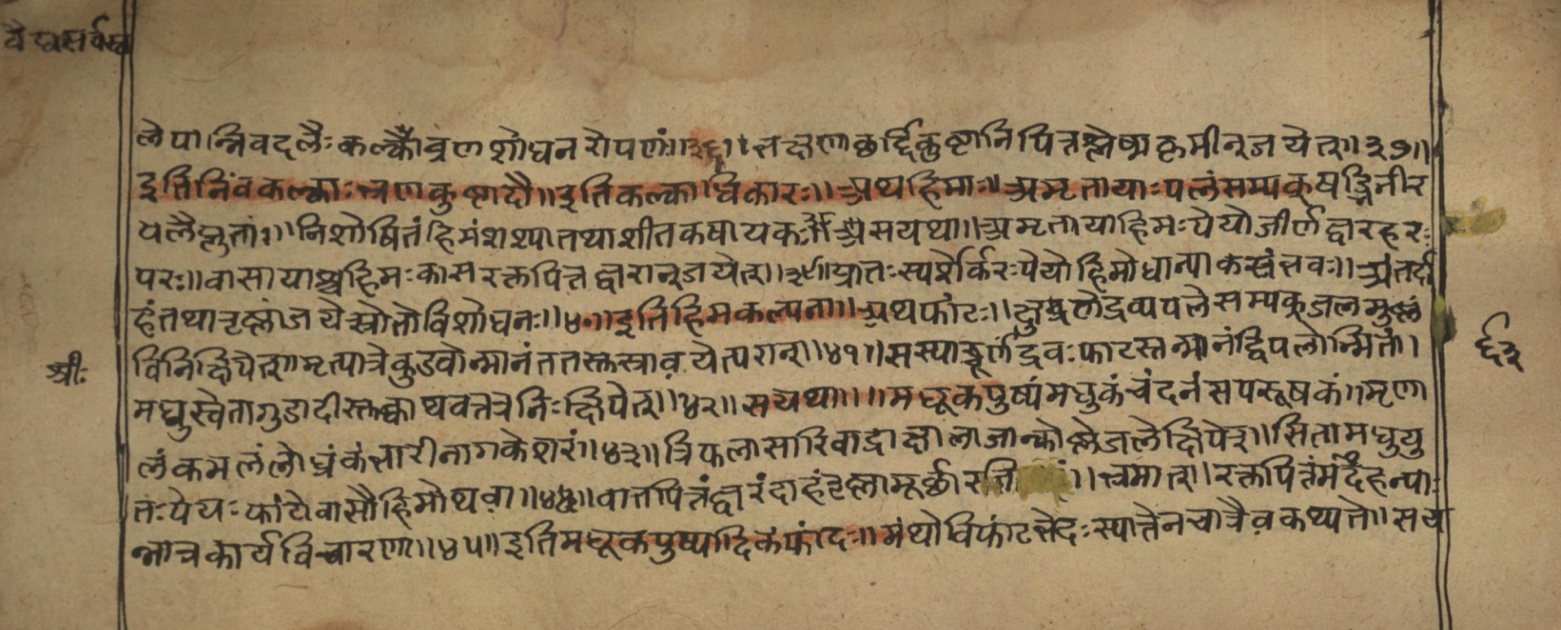 वैद्यसर्वस्व
लेपान्निंवदलैः कल्कौव्रणशोधनरोपणं॥३६॥ भक्षणाछर्द्दिकुष्टानिपित्तश्लेष्मकृमीन्जयेत्॥३७॥
इतिनिंवकल्कः व्रणकुष्टादौ॥इतिकल्काधिकारः॥अथहिमाः॥अमृतायाःपलंसम्यक्षड्भिर्नीर
पलैप्लुतां॥निशोषितंहिमंशश्यातथाशीतकषायकः॥ सयथा॥अमृतायाहिमःपेयोजीर्णज्वरहरः
परः॥वासायाश्चहिमःकासरक्तपित्तज्वरान्जयेत्॥३९॥प्रातःसशर्करःपेयोहिमोधान्याकसंभवः॥अंतर्दा
हंतथातृष्णांजयेस्रोतोविशोधनः॥४०॥इतिहिमकल्पना॥अथफांटः॥क्षुण्णेद्रव्यपलेसम्यक्जलमुष्णं
विनिक्षिपेत्॥मृत्पात्रेकुडवोन्मानंततस्तस्रावयेत्परान्॥४१॥सस्याच्चूर्णद्रवःफाटस्तन्मानंद्विपलोन्मितं।
मधुस्वेतागुडादींस्तक्वाथवत्तत्रनिःक्षिपेत्॥४२॥सयथा॥॥मधूकपुष्पंमधुकंचंदनंसपरूषकं॥मृणा
लंकमलंलोध्रंकंभारीनागकेशरं॥४३॥त्रिफलासारिवाद्राक्षालाजान्कोष्णेजलेक्षिपेत्॥सितामधुयु
तःपेयःफांटोवासौहिमोथवा॥४४॥वातपित्तंज्वरंदाहंतृष्णामूर्छारति भ्रमान्॥रक्तपित्तंमदंहन्या
न्नात्रकार्यविचारणा॥४५॥इतिमधूकपुष्पादिकंफांटः॥मंथोविफांटभेदःस्यात्तेनचात्रैवकथ्यते॥सच
श्रीः
६३